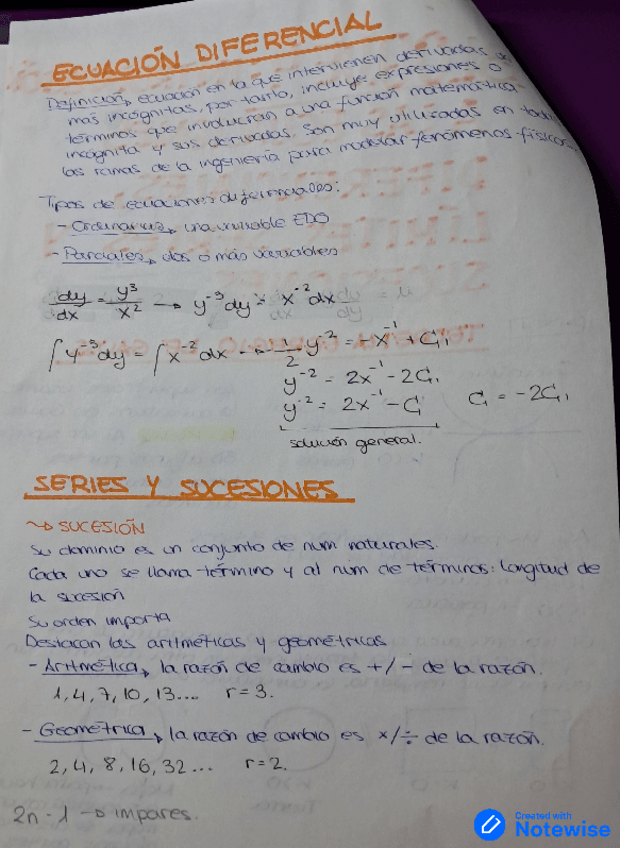 ECUACIÓN DIFERENCIAL
Definición, ecuación en la que intervienen derivadas de
más incógnitas, por tanto, incluye expresiones o
términos que involucran a una función matemática
incógnita y sus derivadas. Son muy utilizadas en todas
las ramas de la ingeniería para modelar fenómenos físicos.
Tipos de ecuaciones diferenciales:
- Ordinarias, una variable EDO
- Parciales, dos o más variables
dy/dx = y³/x² → y⁻³dy = x⁻²dx
∫y⁻³dy = ∫x⁻²dx → -1/2 y⁻² = -x⁻¹ + C₁
y⁻² = 2x⁻¹ - 2C₁
y⁻² = 2x⁻¹ - C C = -2C₁
solución general.
SERIES Y SUCESIONES
→ SUCESIÓN
Su dominio es un conjunto de num naturales.
Cada uno se llama término y al num de términos: longitud de
la sucesión
Su orden importa
Destacan las aritméticas y geométricas
- Aritmética, la razón de cambio es +/- de la razón.
1, 4, 7, 10, 13... r = 3.
- Geométrica, la razón de cambio es ×/÷ de la razón.
2, 4, 8, 16, 32... r = 2.
2n - 1 → impares.
Created with
Notewise